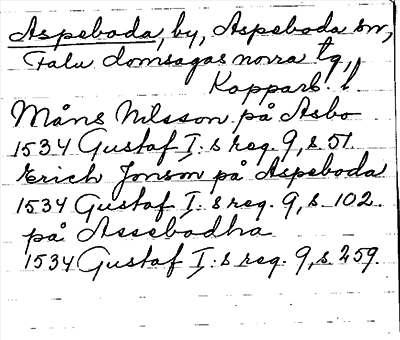 Aspeboda, by, Aspeboda sn,
Falu domsagas norra tg,
Kopparb. l.
Måns Nilsson på Asbo
1534 Gustaf I:s reg. 9, s. 51.
Erich Jonson på Aspeboda
1534 Gustaf I:s reg. 9, s. 102.
på Assebodha
1534 Gustaf I:s reg. 9, s. 259.